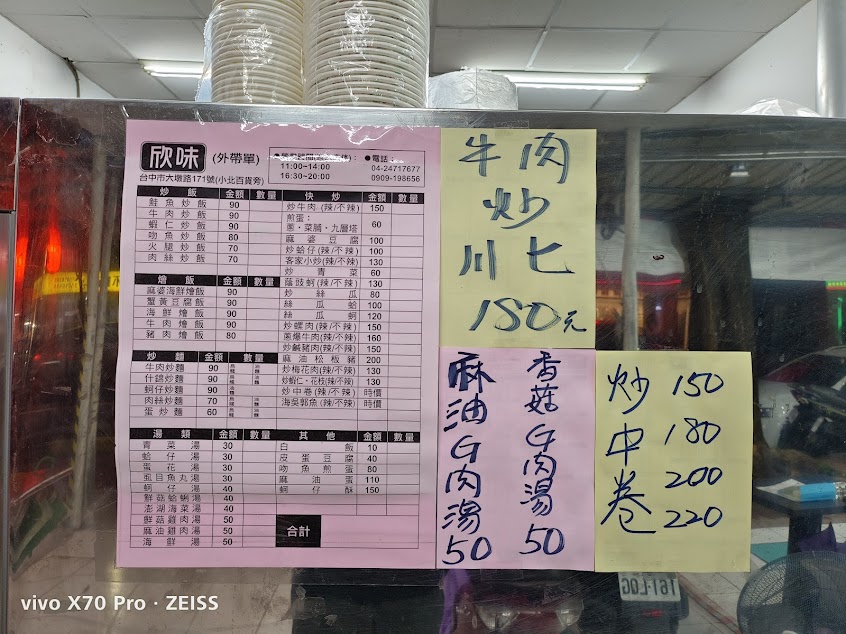 欣味 (外帶單)
台中市大墩路171號(小北百貨旁)
11:00~14:00
16:30~20:00
●電話:
04-24717677
0909-198656
炒飯 金額 數量
鮭魚炒飯 90
牛肉炒飯 90
蝦仁炒飯 90
吻魚炒飯 80
火腿炒飯 70
肉絲炒飯 70
燴飯 金額 數量
麻婆海鮮燴飯 90
蟹黃豆腐飯 90
海鮮燴飯 90
牛肉燴飯 90
豬肉燴飯 80
炒麵 金額 數量
牛肉炒麵 90
什錦炒麵 90
蚵仔炒麵 90
肉絲炒麵 70
蛋炒麵 60
快炒 金額 數量
炒牛肉(辣/不辣) 150
煎蛋:
蔥、菜脯、九層塔 60
麻婆豆腐 100
炒蛤仔(辣/不辣) 100
客家小炒(辣/不辣) 130
炒青菜 60
蔭豉蚵(辣/不辣) 130
炒絲瓜 80
絲瓜蛤 100
絲瓜蚵 120
炒螺肉(辣/不辣) 150
蔥爆牛肉(辣/不辣) 160
炒鹹豬肉(辣/不辣) 150
麻油松板豬 200
炒梅花肉(辣/不辣) 130
炒蝦仁、花枝(辣/不辣) 130
炒中卷(辣/不辣) 時價
海吳郭魚(辣/不辣) 時價
湯類 金額 數量
青菜湯 30
蛤仔湯 30
蛋花湯 30
虱目魚丸湯 30
蚵仔湯 40
鮮菇蛤蜊湯 40
澎湖海菜湯 40
鮮菇雞肉湯 50
麻油雞肉湯 50
海鮮湯 50
其他 金額 數量
白飯 10
皮蛋豆腐 40
吻魚煎蛋 80
麻油蛋 110
蚵仔酥 150
合計
牛肉
炒
川七
180元
香菇G肉湯50
麻油G肉湯50
炒中卷
150
180
200
220
161-LOG
vivo X70 Pro · ZEISS